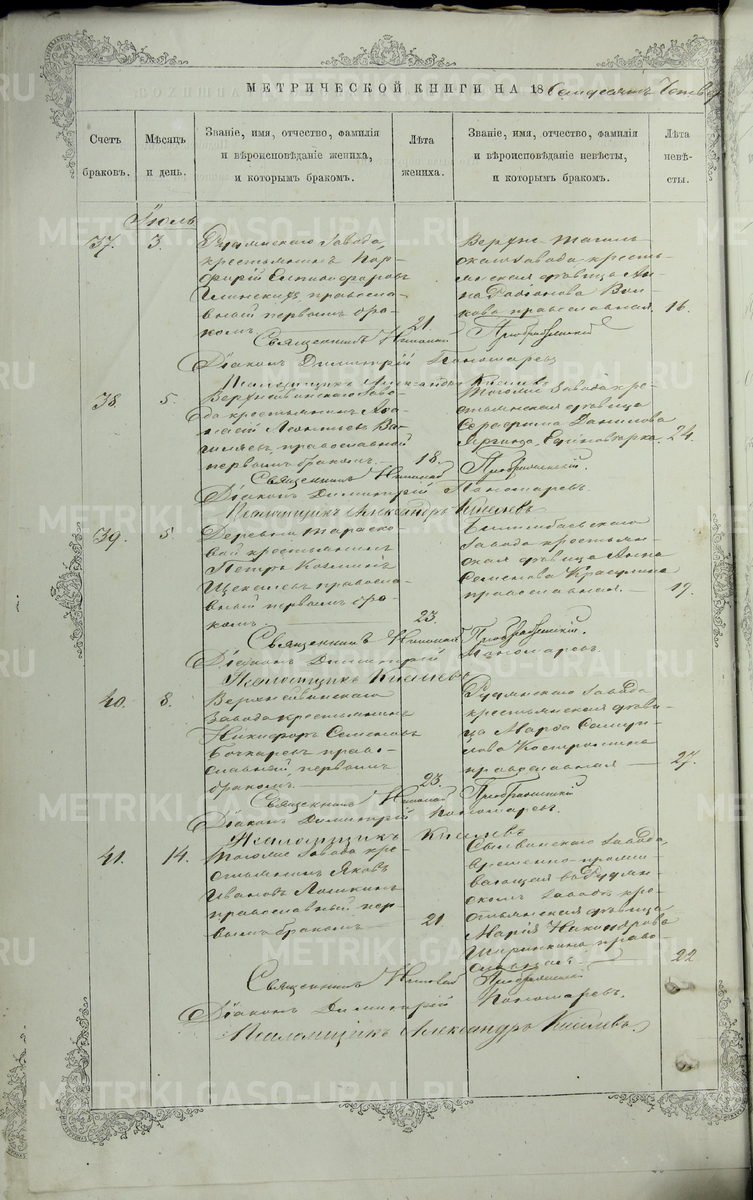 МЕТРИЧЕСКОЙ КНИГИ НА 18 Семдесятъ Четвер
Счетъ браковъ.
Мѣсяцъ и день.
Званіе, имя, отчество, фамилія
и вѣроисповѣданіе жениха,
и которымъ бракомъ.
Лѣта жениха.
Званіе, имя, отчество, фамилія
и вѣроисповѣданіе невѣсты,
и которымъ бракомъ.
Лѣта невѣ-
сты.
Іюль
37. 3.
Рудянскаго Завода,
крестьянинъ Пор-
фирій
православ-
ный первымъ бра-
комъ. 21.
Верхне-Тагиль-
скаго Завода кресть-
янская дѣвица Ан-
на Родіонова Вол-
кова православная. 16.
Священникъ Николай Преображенскій
Діаконъ Димитрій Пономаревъ
Псаломщикъ Александръ Киселевъ
38. 5.
Верхнейвинскаго Заво-
да крестьянинъ
Леонтьевъ
православной
первымъ бракомъ. 18.
Тогоже Завода кре-
стьянская дѣвица
Серафима Данилова
Единовѣрка. 24.
Священникъ Николай Преображенскій.
Діаконъ Димитрій Пономаревъ.
Псаломщикъ Александръ Киселевъ
39. 5.
Деревни Тараско-
вой крестьянинъ
Петръ Козминъ
православ-
ный первымъ бра-
комъ 23.
Билимбаевскаго
Завода крестьян-
ская дѣвица Анна
Семенова
православная. 19.
Священникъ Николай Преображенскій.
Діаконъ Димитрій Пономаревъ.
Псаломщикъ Киселевъ
40. 8.
Верхнейвинскаго
Завода крестьянинъ
Никифоръ Семеновъ
Бочкаревъ право-
славный, первымъ
бракомъ. 23.
Рудянскаго Завода
крестьянская дѣви-
ца Марѳа Самуи-
лова Костромина
православная 27.
Священникъ Николай Преображенскій
Діаконъ Димитрій Пономаревъ.
Псаломщикъ Киселевъ
41. 14.
Тогоже Завода кре-
стьянинъ Яковъ
Ивановъ
православный пер-
вымъ бракомъ 21
Завода,
временно прожи-
вающая въ Рудян-
скомъ Заводѣ кре-
стьянская дѣвица
Марія Никанорова
Ширинкина право-
славная 22
Священникъ Николай Преображенскій
Діаконъ Димитрій Пономаревъ.
Псаломщикъ Александръ Киселевъ.
METRIKI.GASO-URAL.RU